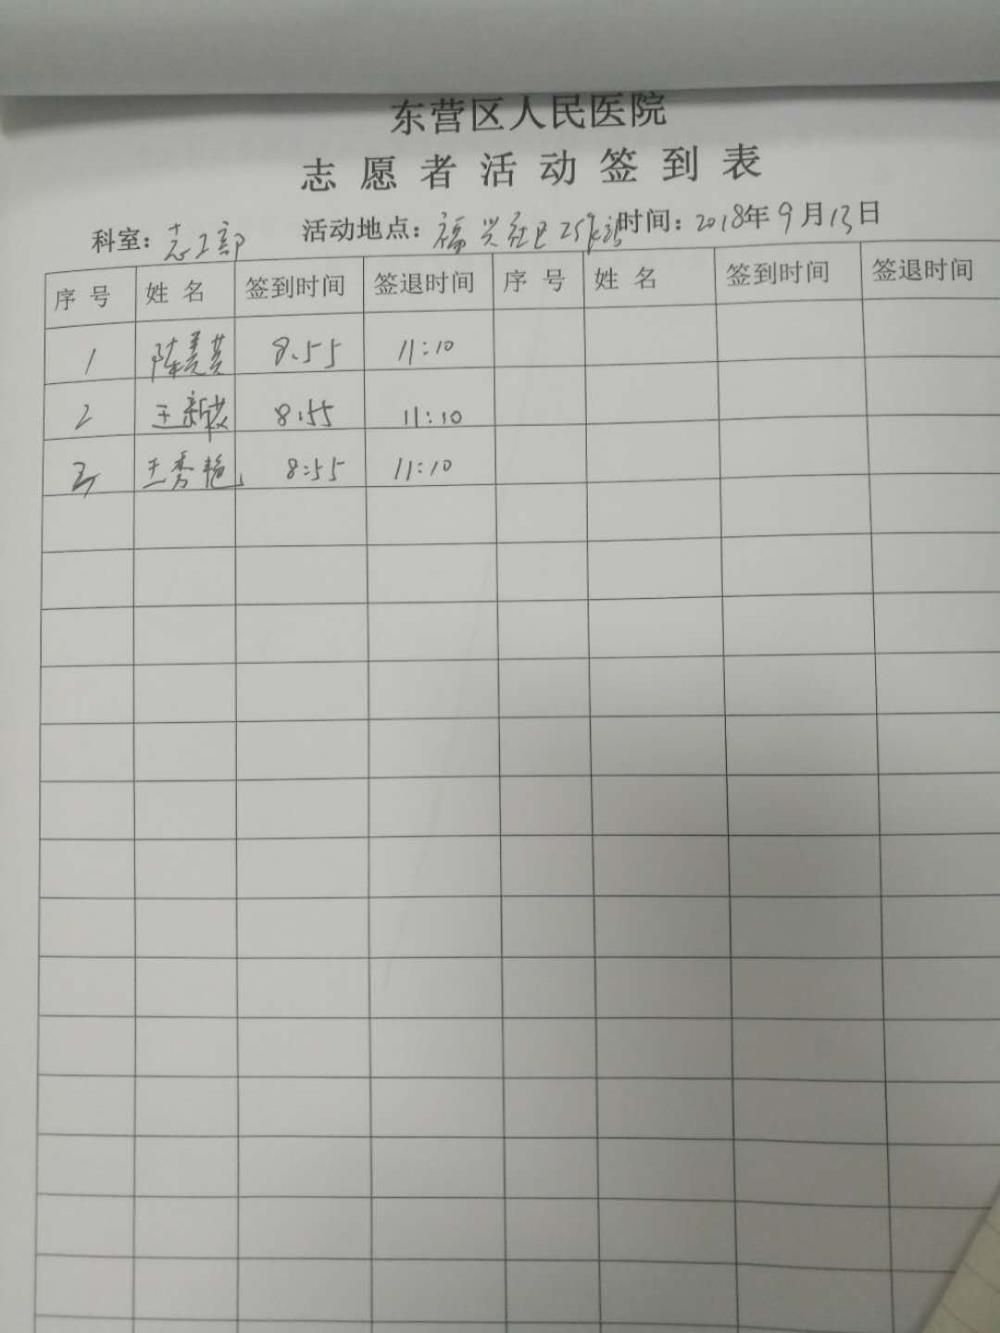 东营区人民医院
志愿者活动签到表
科室：志工部 活动地点：福兴社卫工作站 时间：2018年9月13日
序号 姓名 签到时间 签退时间 序号 姓名 签到时间 签退时间
1 陈美芸 8.55 11:10
2 王新 8:55 11:10
3 王秀艳 8:55 11:10